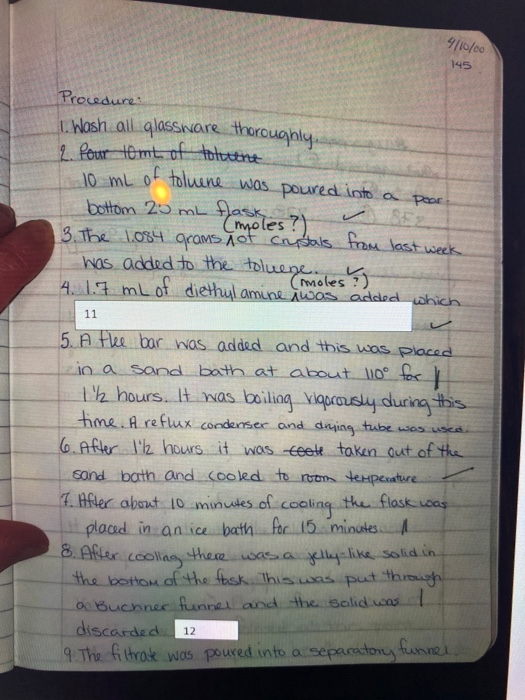 9/10/00
145
Procedure:
1. Wash all glassware thoroughly.
2. Pour 10mL of toluene
10 mL of toluene was poured into a pear
bottom 25 mL flask
(moles ?)
3. The 1.084 grams of crystals from last week
was added to the toluene.
(moles ?)
4. 1.7 mL of diethyl amine was added which
11
5. A flee bar was added and this was placed
in a sand bath at about 110° for
1 1/2 hours. It was boiling vigorously during this
time. A reflux condenser and drying tube was used.
6. After 1 1/2 hours it was taken out of the
sand bath and cooled to room temperature
7. After about 10 minutes of cooling the flask was
placed in an ice bath for 15 minutes.
8. After cooling there was a jelly-like solid in
the bottom of the flask. This was put through
a Buchner funnel and the solid was
discarded 12
9. The filtrate was poured into a separatory funnel.